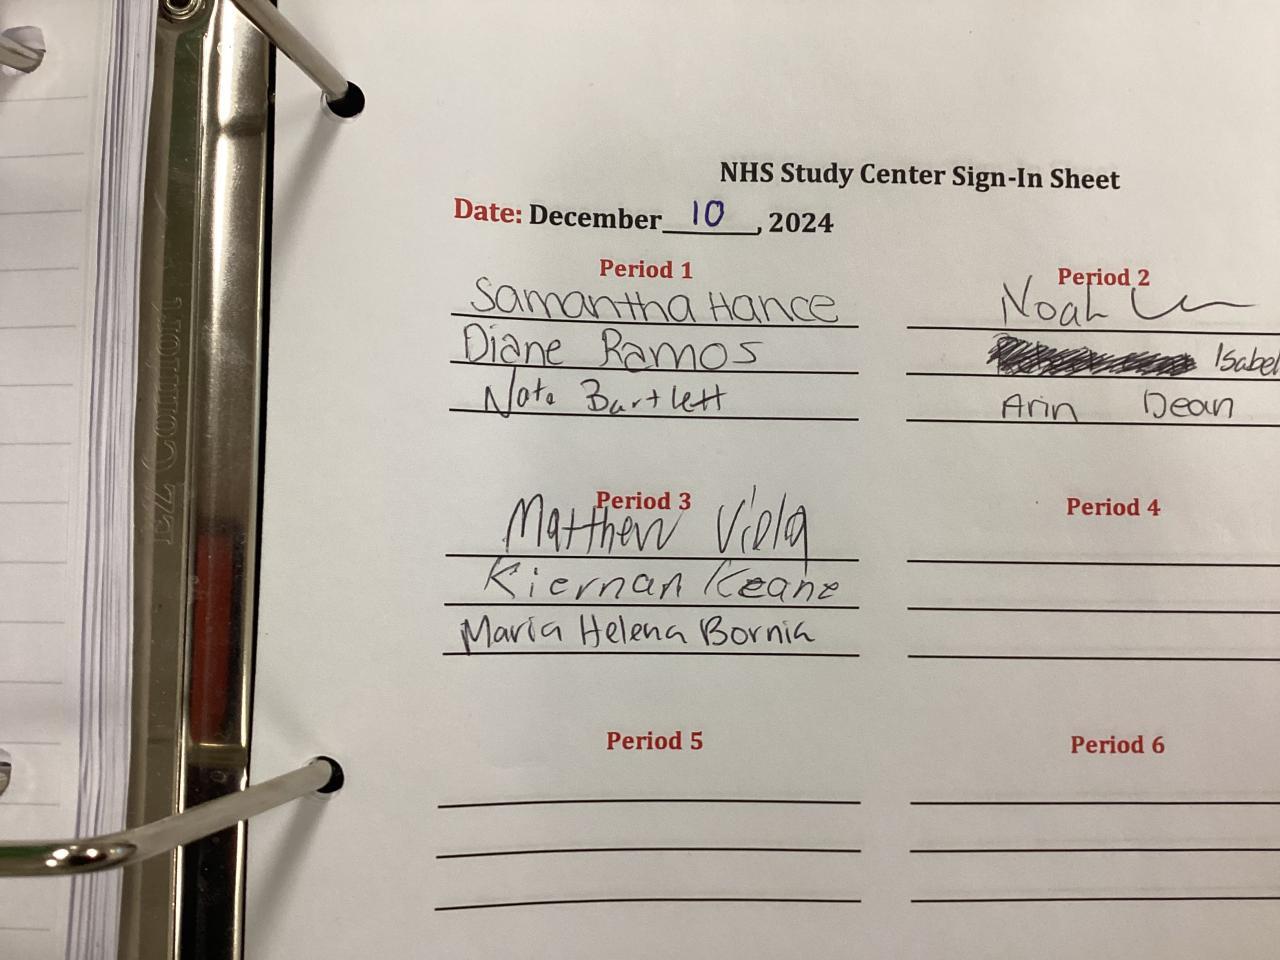 NHS Study Center Sign-In Sheet
Date: December 10, 2024
Period 1
Samantha Hance
Diane Ramos
Nate Bartlett
Period 2
Noah
Isabel
Arin Dean
Period 3
Matthew Viola
Kiernan Keane
Maria Helena Bornia
Period 4
Period 5
Period 6
EZ Comfort